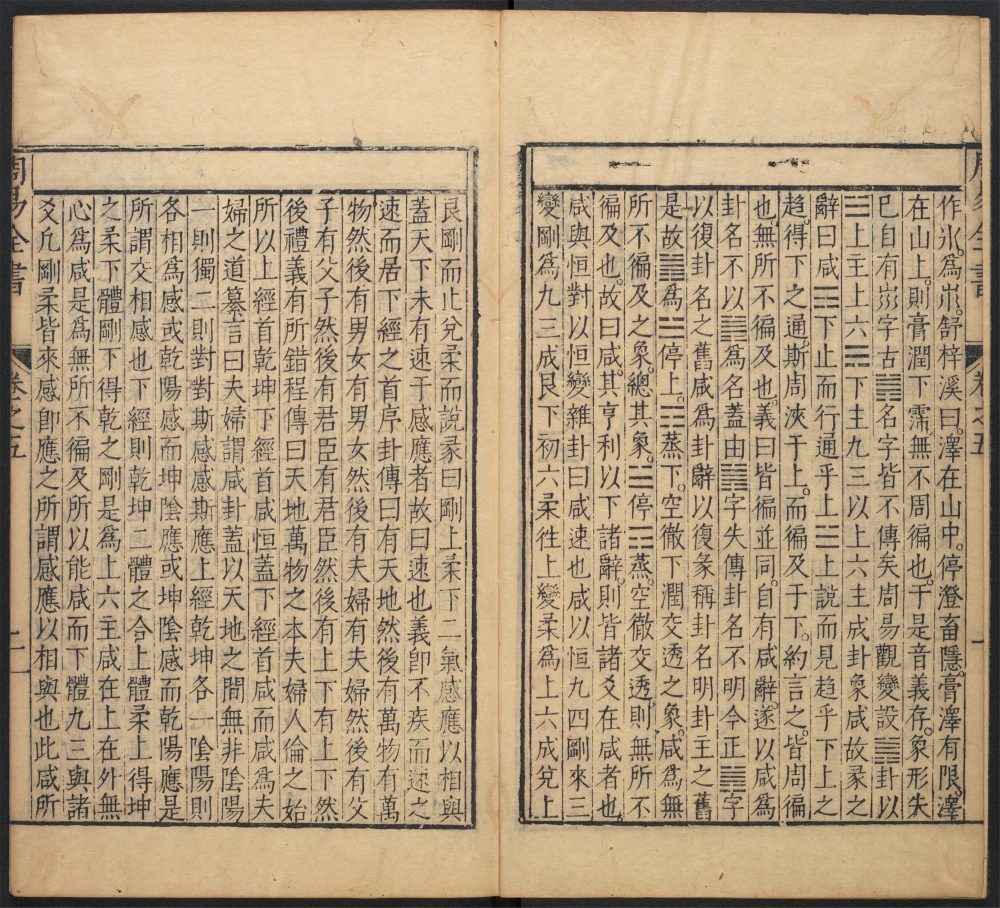 作氷爲㟽舒梓溪曰澤在山中停澄畜隱膏澤有限澤
在山上則膏潤下霈無不周徧也于是音義存象形失
巳自有㟽字古䷞名字皆不傳矣周易觀變設䷞卦以
☱上主上六☶下主九三以上六主成卦象咸故彖之
辭曰咸☶下止而行通乎上☱上說而見趋乎下上之
趋得下之通斯周浹于上而徧及于下約言之皆周徧
也無所不徧及也義曰皆徧並同自有咸辭遂以咸爲
卦名不以䷞爲名蓋由䷞字失傳卦名不明今正䷞字
以復卦名之舊咸爲卦辭以復彖稱卦名明卦主之舊
是故䷞爲☱停上☶蒸下空徹下潤交透之象咸爲無
所不徧及之象總其象☱停☶蒸空徹交透則無所不
徧及也故曰咸其亨利以下諸辭則皆諸爻在咸者也
咸與恒對以恒變雜卦曰咸速也咸以恒九四剛來三
變剛爲九三成艮下初六柔徃上變柔爲上六成兌上
周易全書
卷之五
一
艮剛而止兌柔而說彖曰剛上柔下二氣感應以相與
蓋天下未有速于感應者故曰速也義卽不疾而速之
速而居下經之首序卦傳曰有天地然後有萬物有萬
物然後有男女有男女然後有夫婦有夫婦然後有父
子有父子然後有君臣有君臣然後有上下有上下然
後禮義有所錯程傳曰天地萬物之本夫婦人倫之始
所以上經首乾坤下經首咸恒蓋下經首咸而咸爲夫
婦之道纂言曰夫婦謂咸卦蓋以天地之間無非陰陽
一則獨二則對對斯感感斯應上經乾坤各一陰陽則
各相爲感或乾陽感而坤陰應或坤陰感而乾陽應是
所謂交相感也下經則乾坤二體之合上體柔上得坤
之柔下體剛下得乾之剛是爲上六主咸在上在外無
心爲咸是爲無所不徧及所以能咸而下體九三與諸
爻凡剛柔皆來感卽應之所謂感應以相與也此咸所
周易全書
卷之五
二